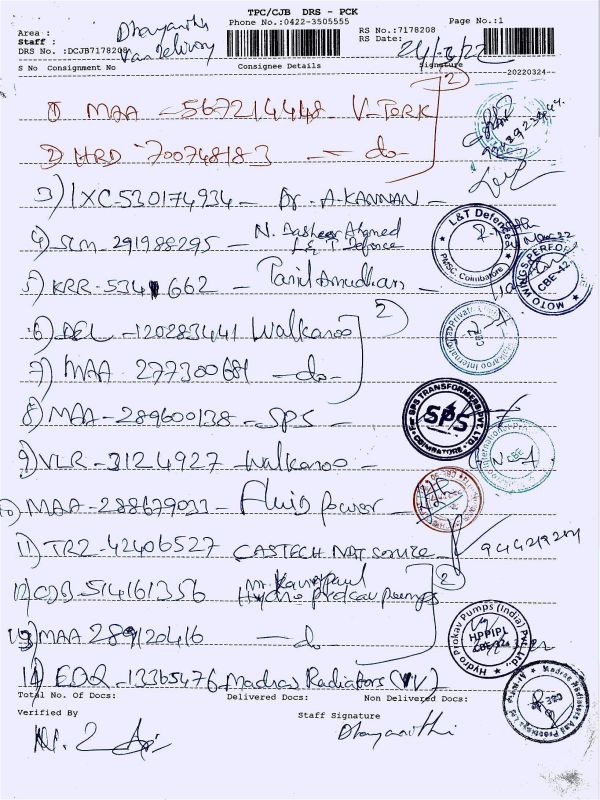 TPC/CJB DRS - PCK
Phone No.:0422-3505555 Page No.:1
Area : Dhayanithi RS No.:7178208
Staff : RS Date: 24/3/22
DRS No. :DCJB7178208
S No Consignment No Consignee Details Signature
20220324
1) MAA - 567214448 V-Tork 2
2) HRD 70074818 3 - do -
3) IXC-530174934 - Dr. A-KANNAN -
4) SLM - 291988295 - N. Ahmed
L & T Defence
5) KRR - 534 662 - Tamil Amudhan -
L&T Defence
PMSC, Coimbatore
MOTO WINGS-PERFO
CBE-42
6) DEL - 120283441 Walkaroo 2
7) MAA 277300681 - do -
8) MAA - 289600138 - SPS -
for SPS TRANSFORMERS PVT. LTD.
SPS
COIMBATORE
9) VLR - 3124927 - Walkaroo -
10) MAA - 288679033 - Fluid power -
11) TRZ - 42406527 CASTECH NDT service -
12) CDB - 514161356 Hydro prokav pumps 2
13) MAA 289120416 - do
Hydro Prokav Pumps (India) Pvt. Ltd.,
HPPIPL
14) EDQ - 13365476 - Madras Radiators
Total No. Of Docs: Delivered Docs: Non Delivered Docs:
Verified By Staff Signature
Dhayanithi